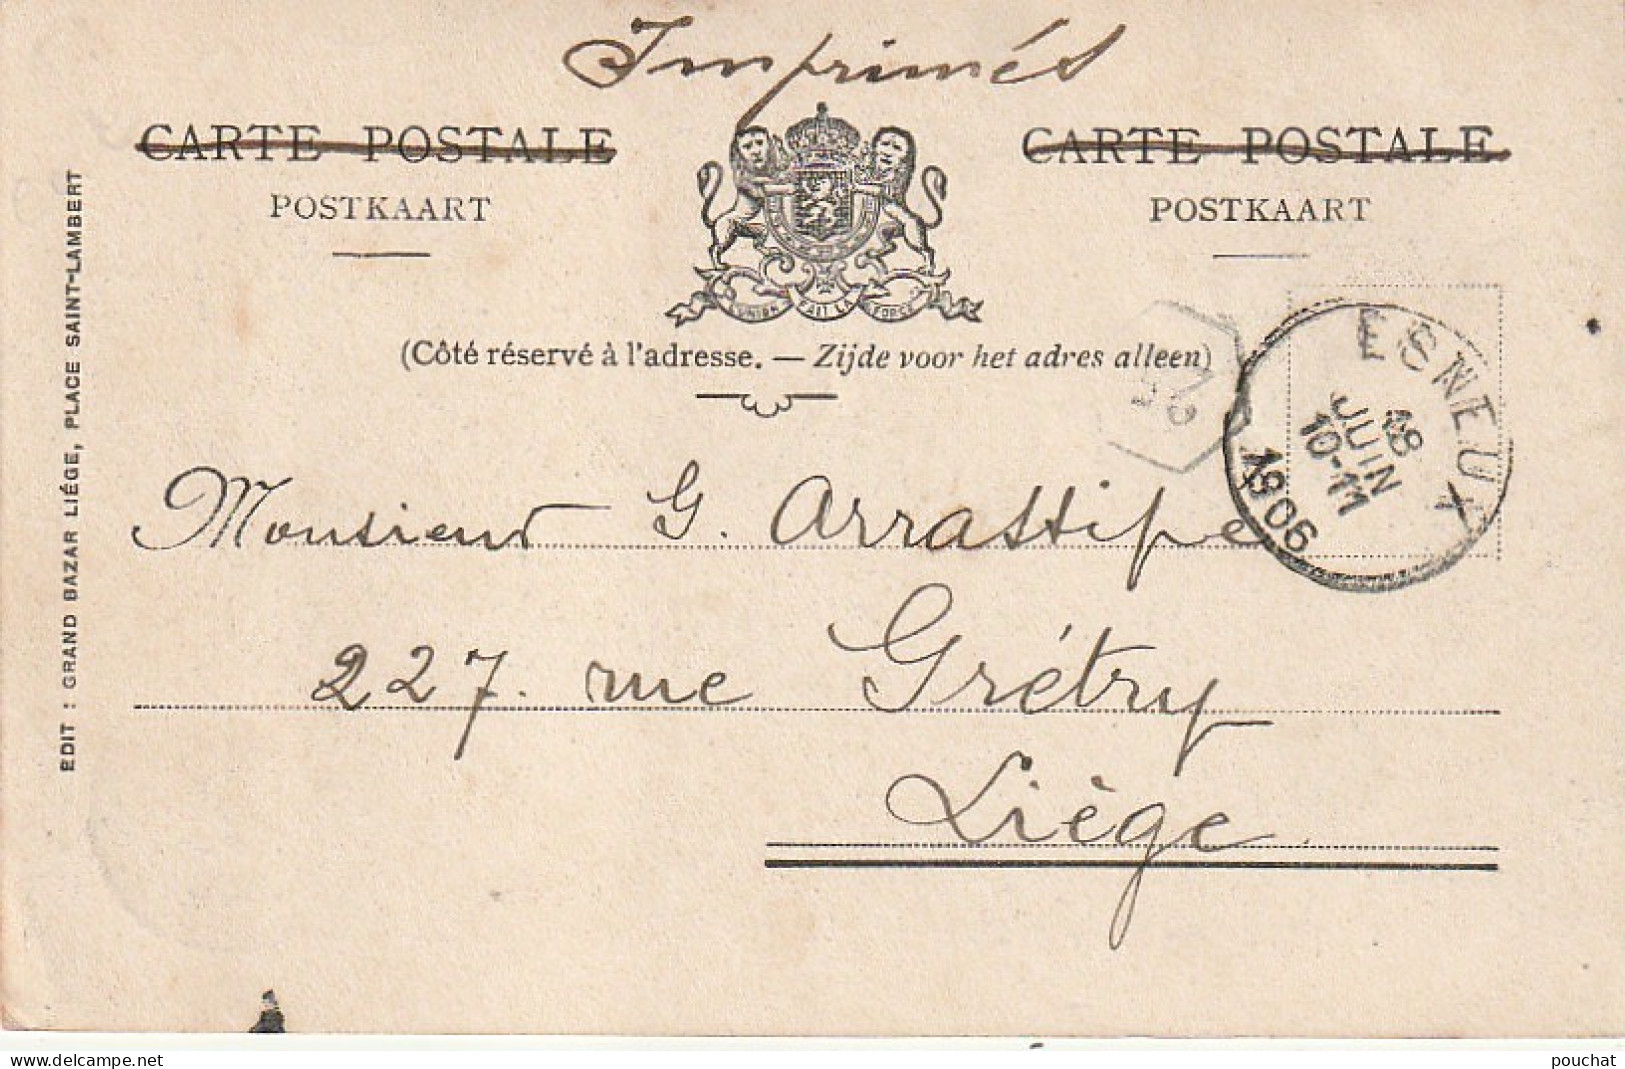 Imprimés
CARTE POSTALE
POSTKAART
CARTE POSTALE
POSTKAART
L'UNION FAIT LA FORCE
(Côté réservé à l'adresse. — Zijde voor het adres alleen)
ESNEUX
18
JUIN
10-11
1906
Monsieur G. Arrastipe
227. rue Grétry
Liège
EDIT : GRAND BAZAR LIÉGE, PLACE SAINT-LAMBERT
www.delcampe.net
pouchat